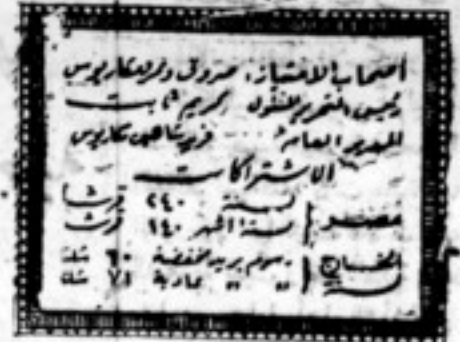 أصحاب الامتياز: صروف ونمر ومكاريوس
رئيس التحرير المسئول كريم ثابت
المدير العام فريد شاهين مكاريوس
الاشتراكات
مصر لسنة ٢٤٠ قرشا
لستة اشهر ١٤٠ قرشا
الخارج رسوم بريد مخفضة ٦٠ شلنا
لسنة " " عادية ٧١ شلنا